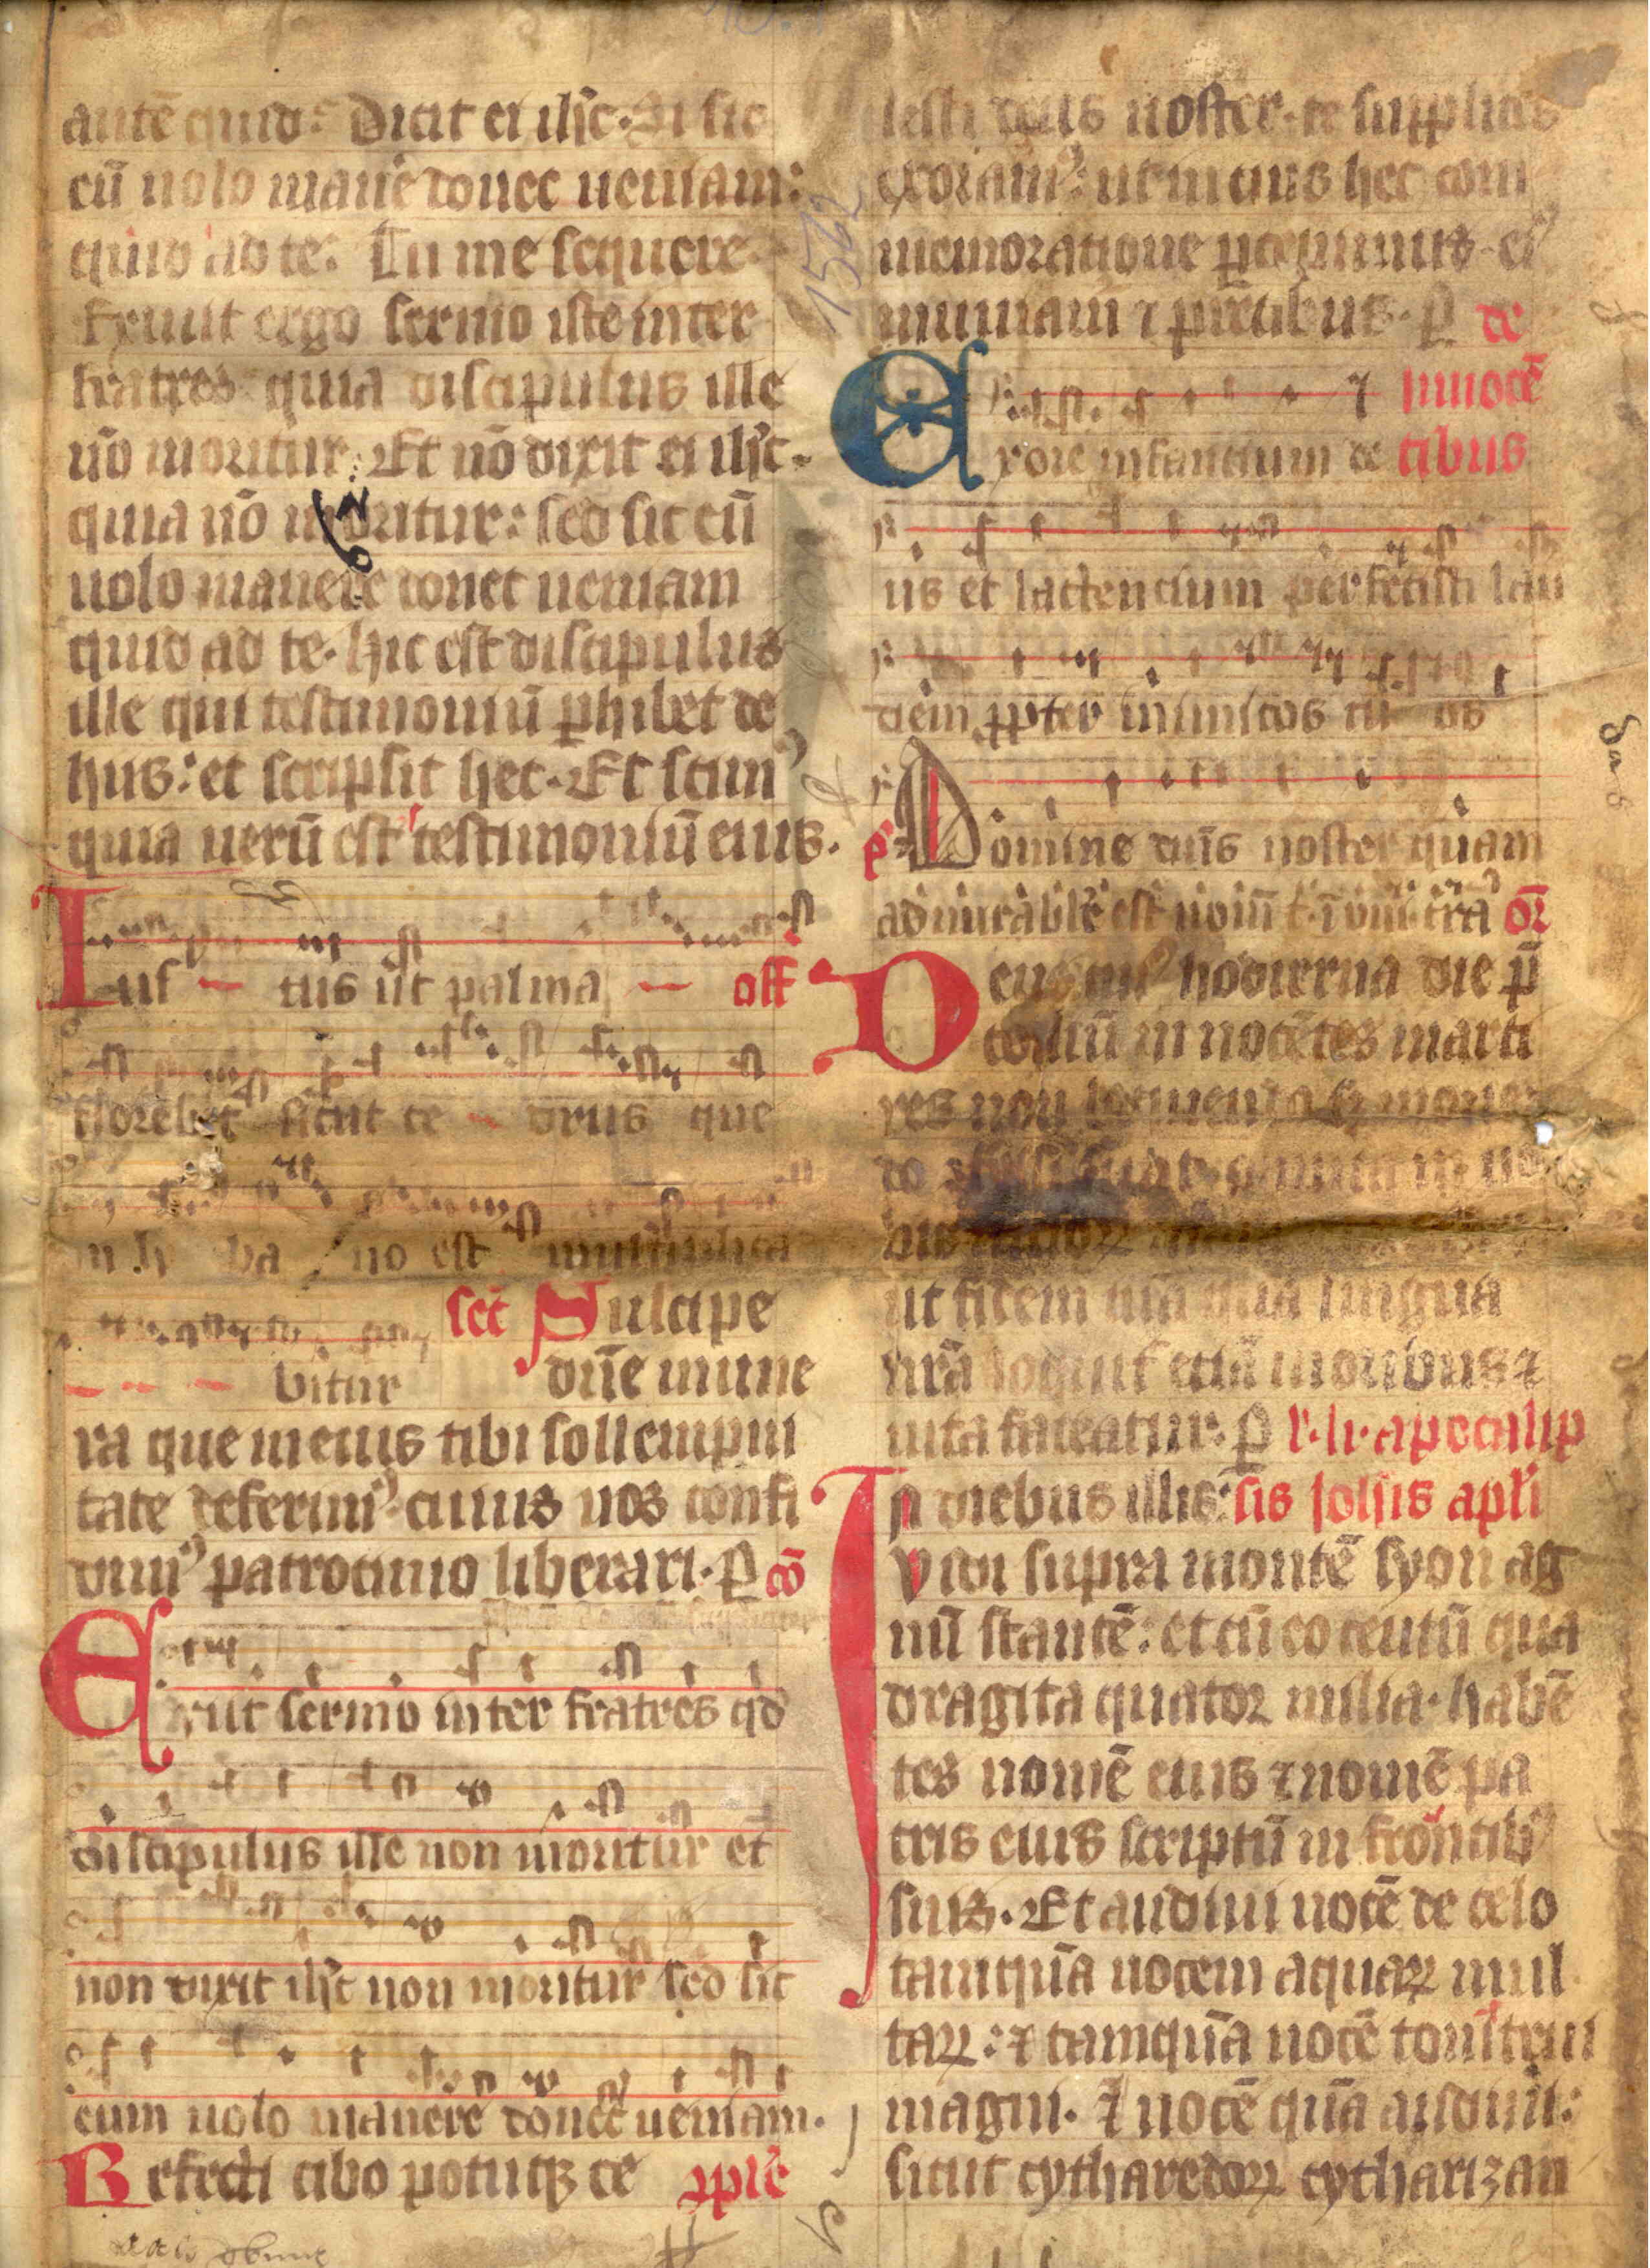 autē quid: Dicit ei ihc. Si sic
eū uolo manē donec ueniam:
quid ad te: Tu me sequere.
Exiuit ergo sermo iste inter
fratres quia discipulus ille
nō moritur: Et nō dixit ei ihc.
quia nō moritur: sed sic eū
uolo manere donec ueniam
quid ad te. hic est discipulus
ille qui testimoniū phibet de
hiis: et scripsit hec. Et scim⁹
quia uerū est testimoniū eius.
Ius – tus ut palma – off
florebit sicut ce – drus que
in li ba no est multiplica
– – – bitur scͣt Suscipe
dn̄e mune
ra que in eius tibi sollempni
tate deferim⁹ cuius nos confi
dim⁹ patrocinio liberari. P̱ cō
Exiit sermo inter fratres qd
discipulus ille non moritur et
non dixit ihc non moritur sed sic
eum uolo manere donec ueniam.
Refecti cibo potuqꝫ ce ꝯple
lesti deus noster. te supplices
exoram⁹: ut in cuius hec com
memoratione ꝑcepimus. ei
muniam ⁊ precibus. P̱ de
innocē
Ex ore infantium de tibus
us et lactencium perfecisti lau
dem ꝓpter inimicos tu os
p̄s Domine dn̄s noster quam
admirabile est nom̄ t. ī uni. tr̄a or̄
Deus cui⁹ hodierna die p̄
coniū innocētes marti
res non loquendo sꝫ morien
do ꝯfessi sunt. omnia in no
bis uicioꝝ
ut fidem tuā quā lingua
nr̄a loquit̄ etiā moribus ⁊
uita fateatur. P̱ l. li. apocalip
In diebus illis: sis iohis apli
Vidi supra montē syon ag
nū stantē: et cū eo centū qua
dragīta quator milia. habē
tes nomē eius ⁊ nomē pa
tris eius scriptū in frontib⁹
suis. Et audiui uocē de celo
tamquā uocem aquaꝝ mul
taꝝ: ⁊ tamquā uocē tonitrui
magni. ⁊ uocē quā audiui:
sicut cytharedoꝝ cytharizan
1562